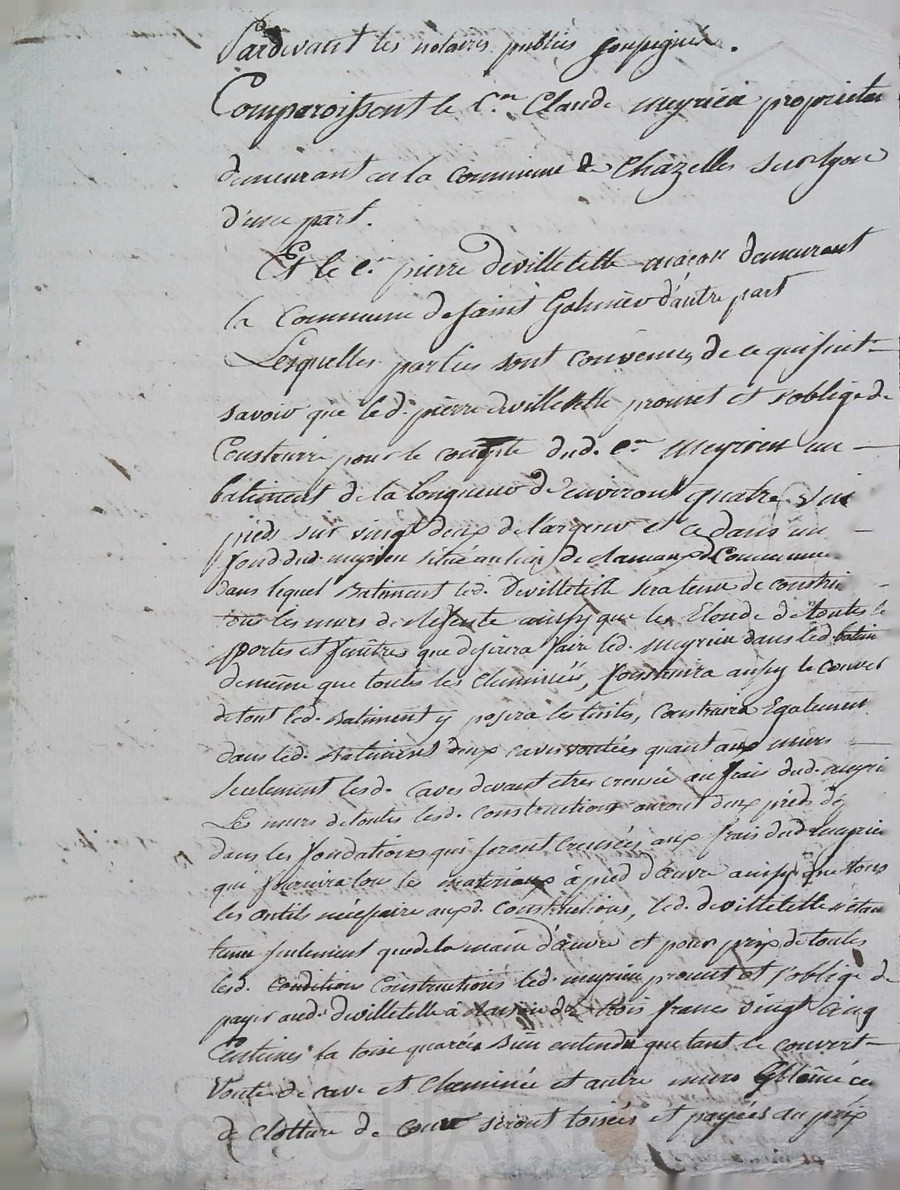 Pardevant les notaires publics soussignés.
Comparoissent le C.en Claude meyrieu propriétai
demeurant en la commune de Chazelles sur lyon
d'une part.
Et le c.en pierre devilletelle macon demeurant
la Commune de saint Galmier d'autre part
Lesquelles parties sont convenues de ce qui suit
savoir que led. pierre devilletelle promet et s'oblige de
Construire pour le compte dud. c.en meyrieu un
batiment de la longueur d'environt quatre vin
pieds sur vingt deux de largeur et ce dans un
fond dud. meyrieu situé au lieu de Commune
dans lequel Batiment led. Devilletelle sera tenu de construi
tous les murs de refente ainsy que les de toutes le
portes et fenêtres que desirera faire led. meyrieu dans led batim
de même que toutes les cheminées, Construira aussy le couvert
de tout led. Batiment y posera les tuiles, Construira Egalement
dans led. Batiment deux caves voutées quant aux murs
seulement lesd. caves devant etres creusée au frais dud. meyri
Les murs de toutes lesd. constructions auront deux pieds
dans les fondations qui seront creusées aux frais dud meyrieu
qui fournira tous les materiaux a pied d'œuvre ainsy que tous
les outils nécessaire auxd. Constructions, led. devilletelle n'étan
tenu seulement que de la main d'œuvre et pour prix de toutes
lesd. Constructions led. meyrieu promet et s'oblige de
payer aud. Devilletelle à raison de trois francs vingt cinq
Centimes la toise quarrée Bien entendu que tant le couvert
Voute de cave et cheminée et autre murs
de clotture de cour seront toisées et payées au prix